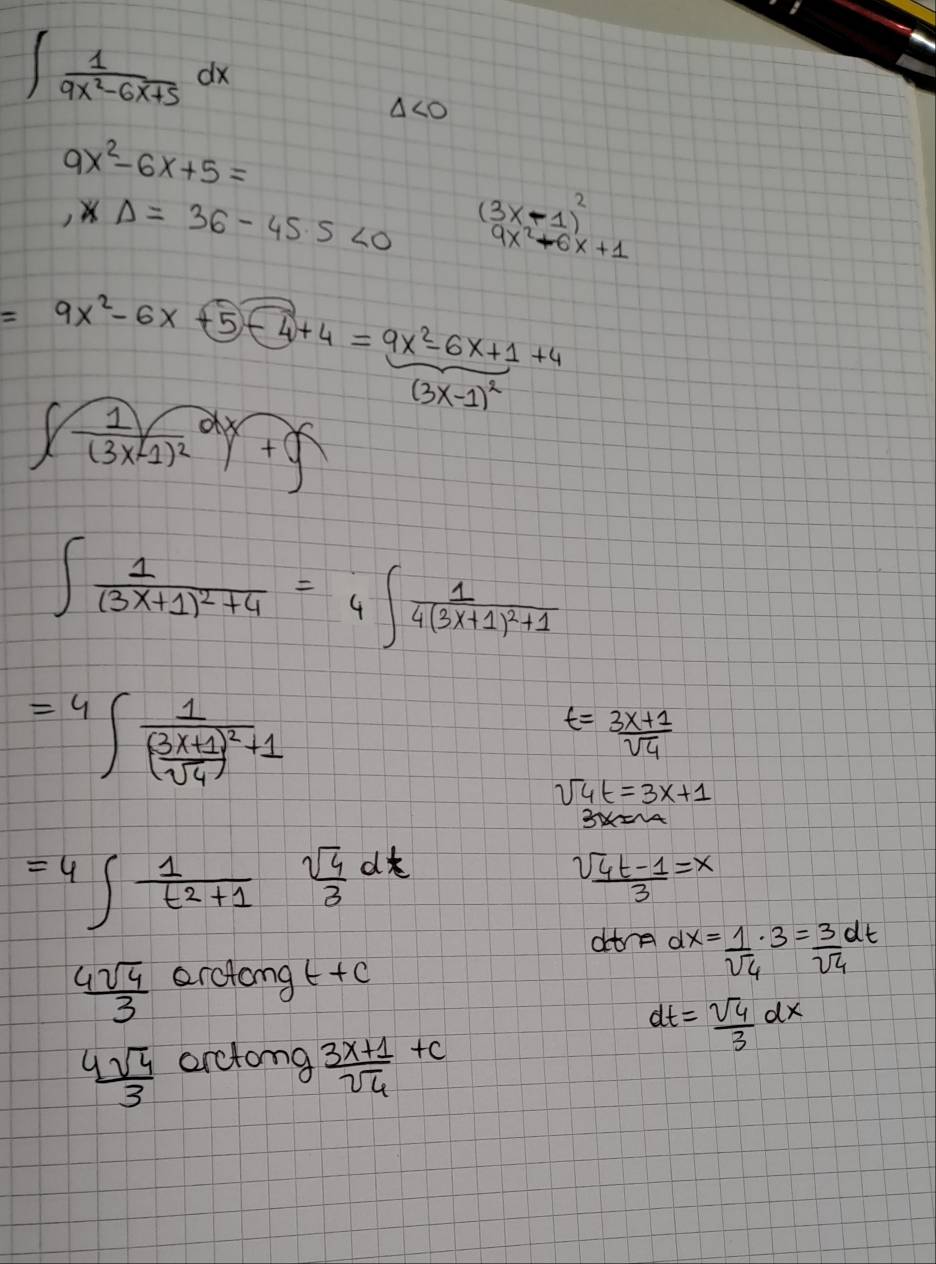 ∫ 1/(9x²-6x+5) dx
Δ<0
9x²-6x+5=
Δ= 36-45·5<0
(3x-1)²
9x²+6x+1
= 9x²-6x+5-4+4 = 9x²-6x+1+4
(3x-1)²
∫ 1/(3x-1)² dx + ∫
∫ 1/((3x+1)²+4) = 4 ∫ 1/(4(3x+1)²+1)
= 4 ∫ 1/(((3x+1)/√4)²+1)
t= (3x+1)/√4
√4t=3x+1
3x=
= 4 ∫ 1/(t²+1) √4/3 dt
(√4t-1)/3=x
dx= 1/√4 · 3 = 3/√4 dt
4√4/3 arctang t+c
dt= √4/3 dx
4√4/3 arctang (3x+1)/√4 +c